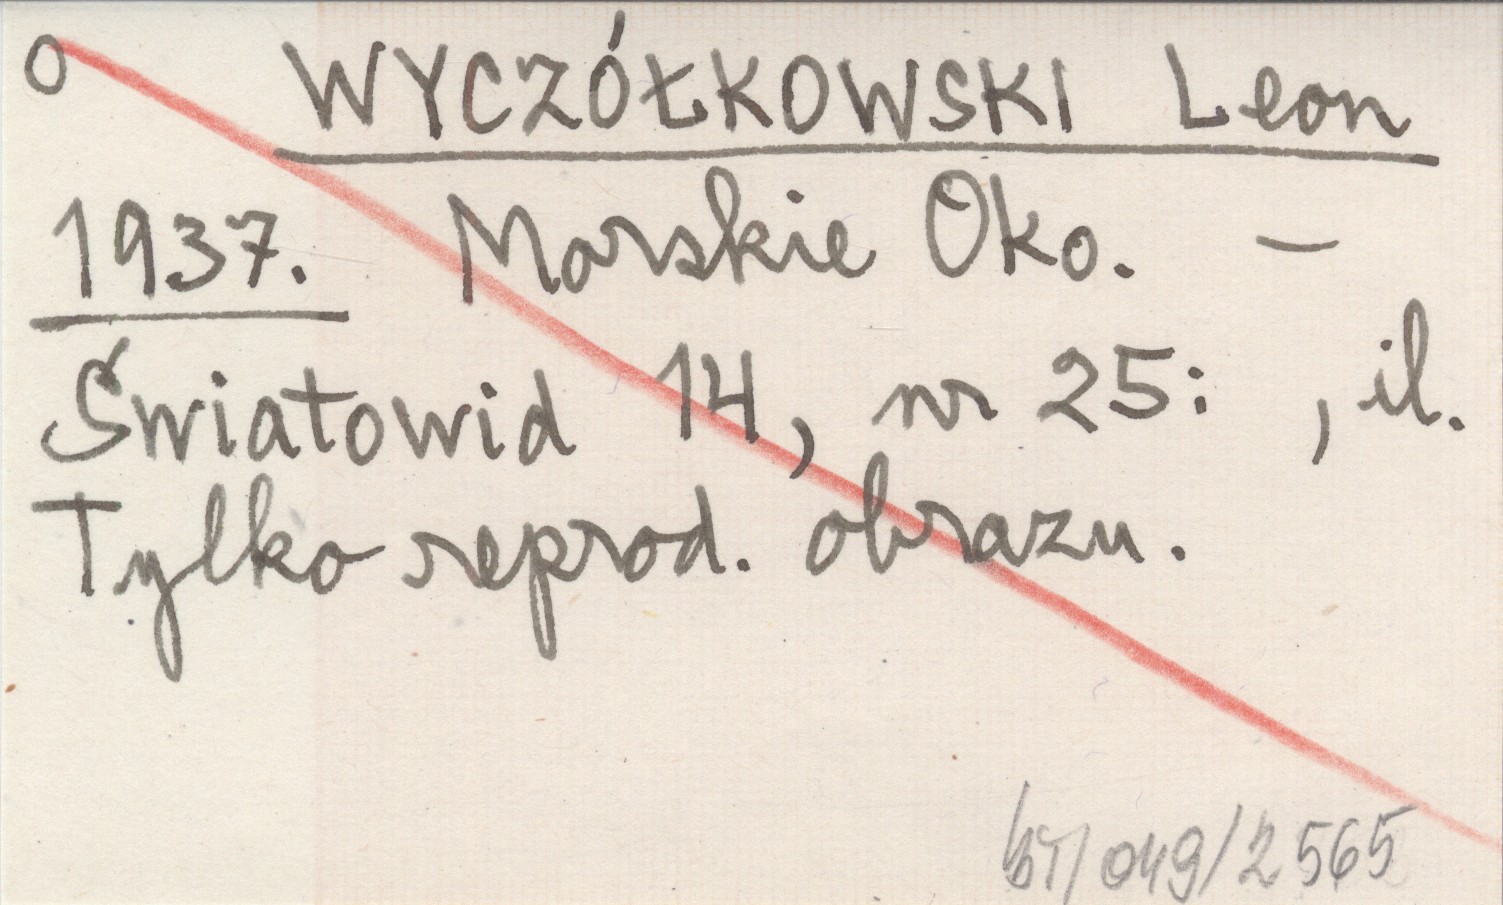 O WYCZÓŁKOWSKI Leon
1937. Morskie Oko. —
Światowid 14, nr 25: , il.
Tylko reprod. obrazu.
bT/049/2565